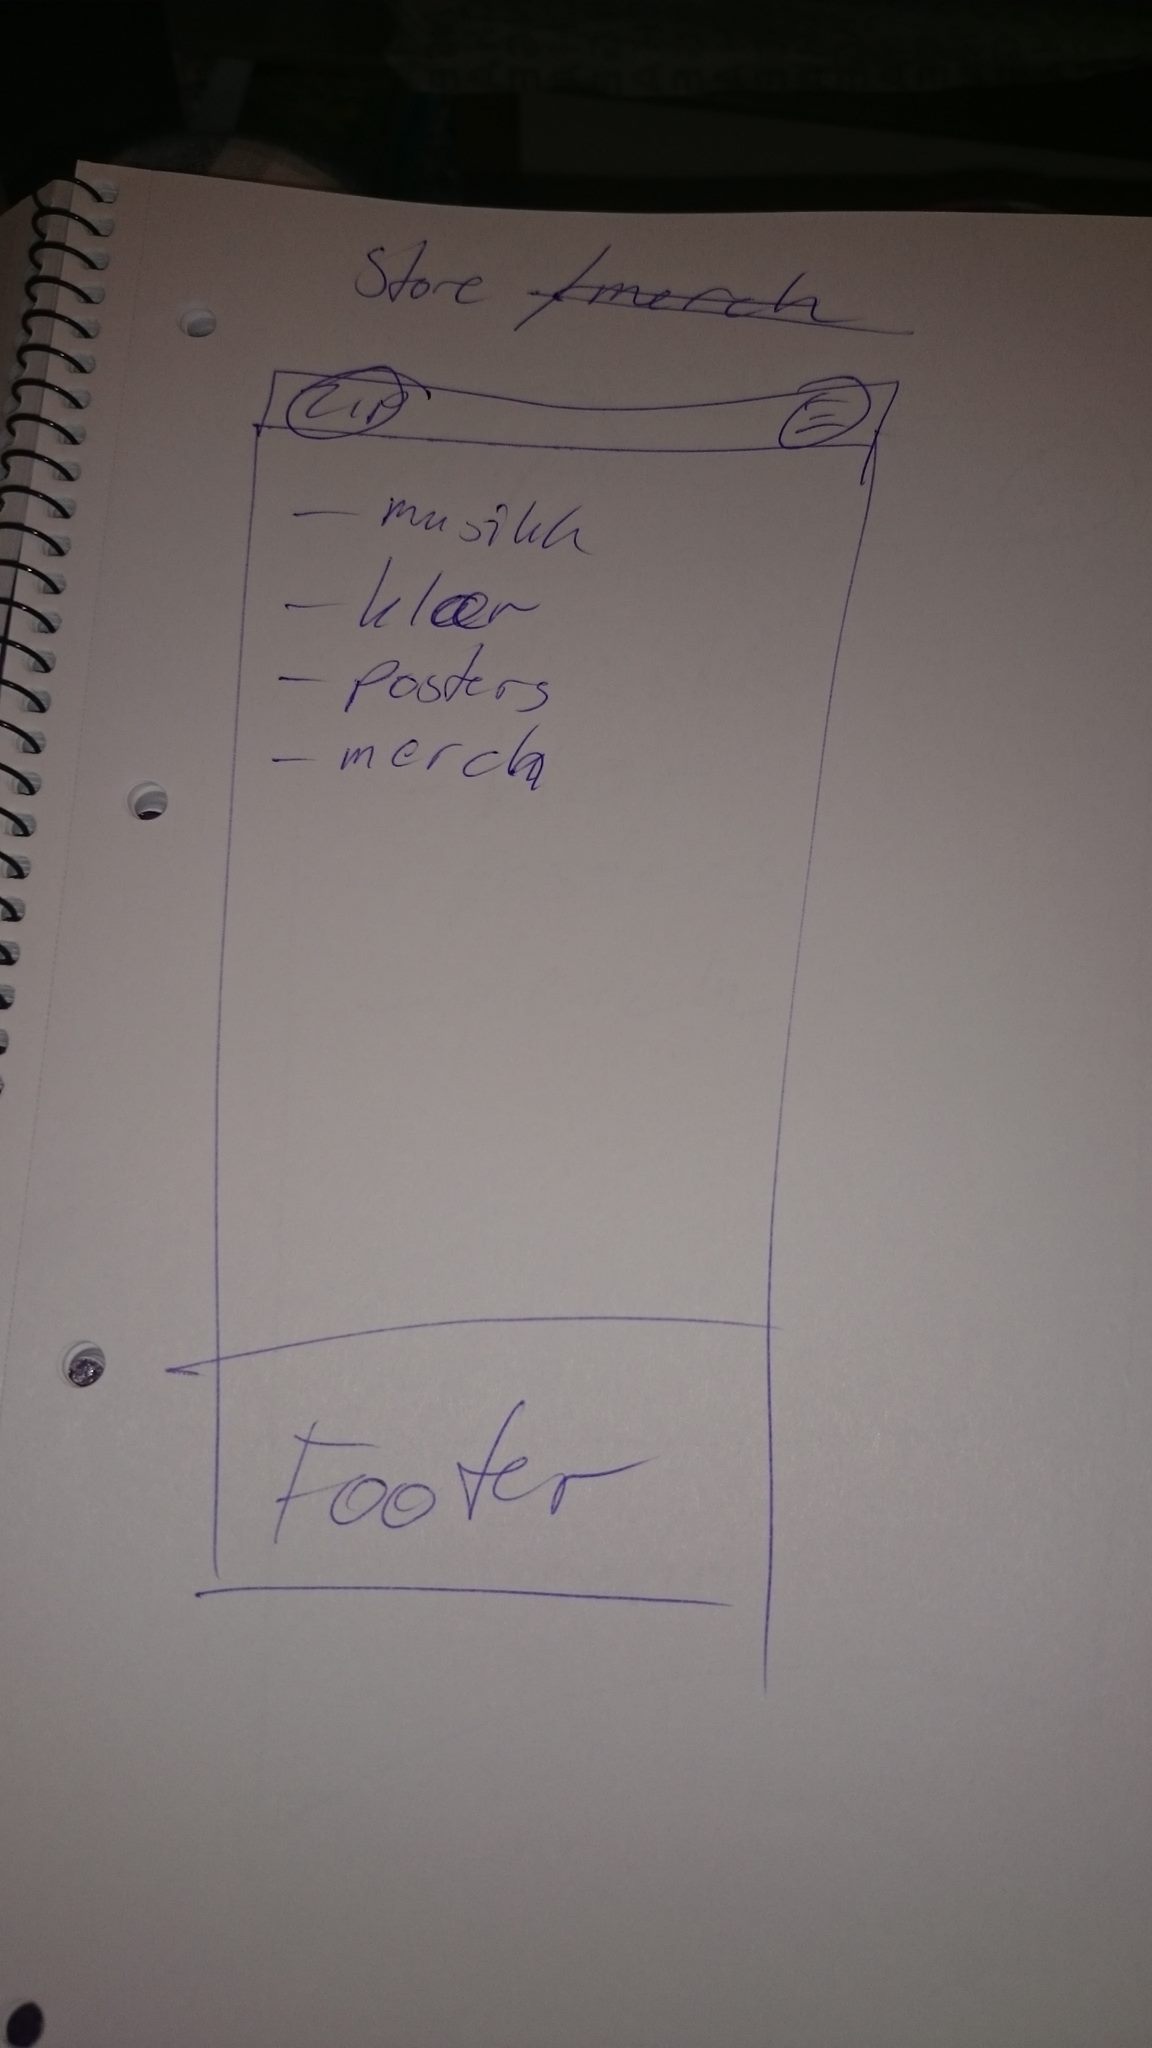 Store /merch
– musikk
– klær
– posters
– merch
Footer